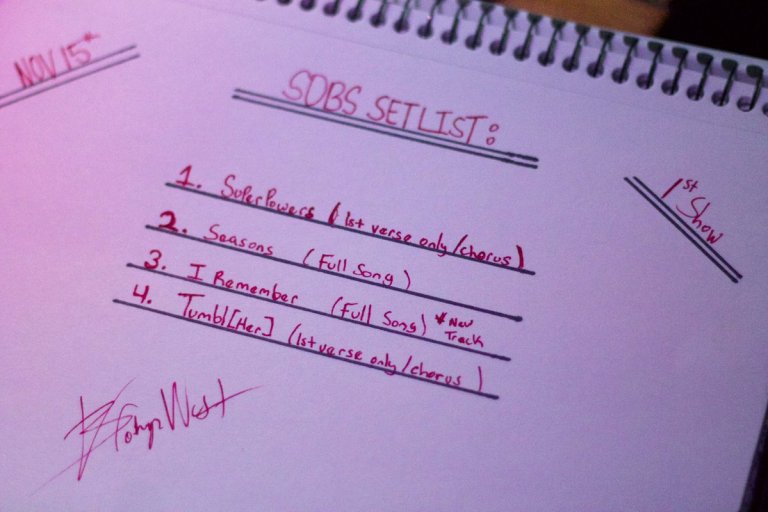 NOV 15th
SOBS SETLIST:
1st
Show
1. SuperPowers (1st verse only/chorus)
2. Seasons (Full Song)
3. I Remember (Full Song) *New
Track
4. Tumbl[Her] (1st verse only/chorus)
West